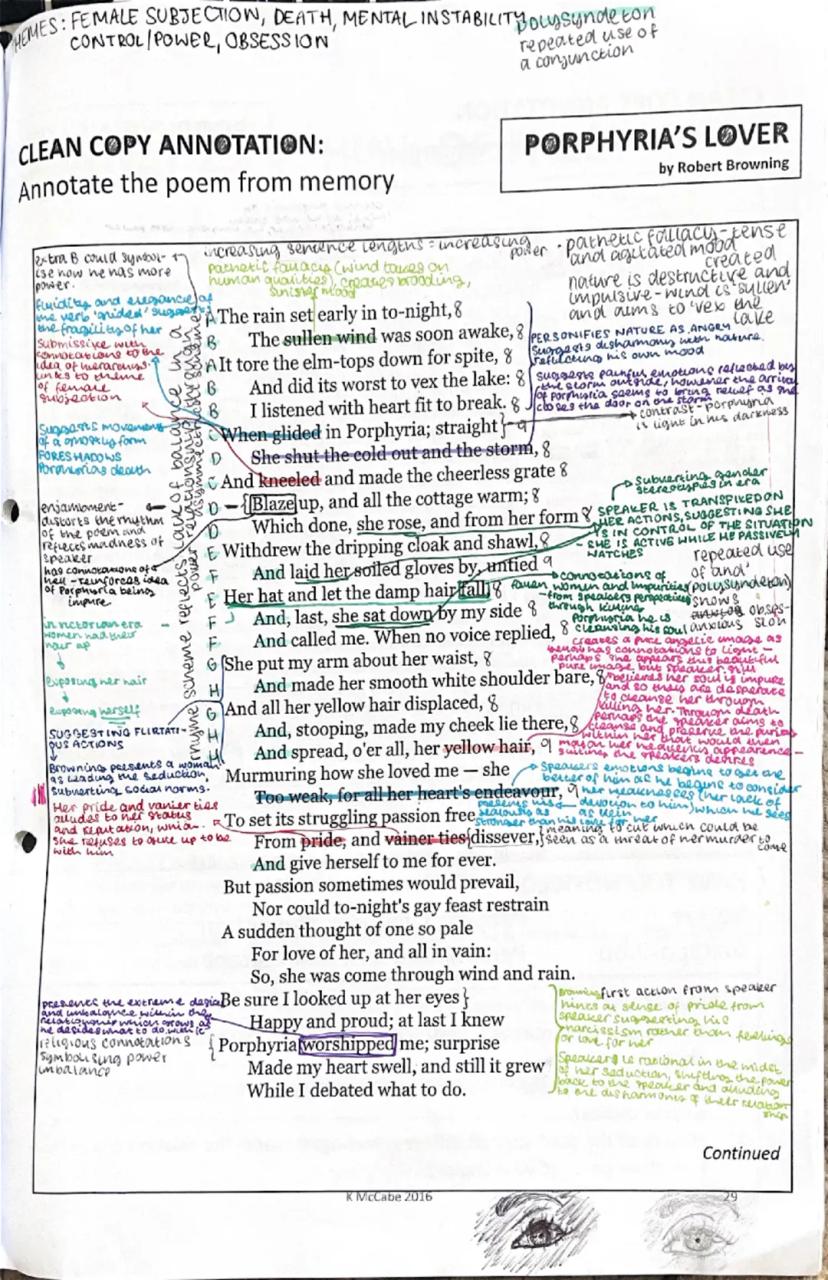 THEMES: FEMALE SUBJECTION, DEATH, MENTAL INSTABILITY
CONTROL/POWER, OBSESSION
polysyndeton
repeated use of
a conjunction
CLEAN COPY ANNOTATION:
Annotate the poem from memory
PORPHYRIA'S LOVER
by Robert Browning
extra B could symbol-
ise how he has more
power.
increasing sentence lengths = increasing
power
pathetic fallacy (wind takes on
human qualities), creates brooding,
sinister mood
· pathetic fallacy - tense
and agitated mood
created
nature is destructive and
impulsive - wind is 'sullen'
and aims to 'vex the
lake'
fluidity and elegance of
the verb 'glided' suggests
the fragility of her
Submissive with
connotations to the
idea of hierarchy.
links to theme
of female
subjection
Suggests movement
of a ghostly form
FORESHADOWS
Porphyrias death
enjambment-
distorts the rhythm
of the poem and
reflects madness of
speaker
has connotations of
hell - reinforces idea
of Porphyria being
impure.
in victorian era
women had their
hair up
exposing her hair
exposing herself
SUGGESTING FLIRTATI-
OUS ACTIONS
Browning presents a woman
as leading the seduction,
Subverting social norms.
Her pride and vanier ties
alludes to her status
and reputation, which
she refuses to give up to be
with him
rhyme scheme reflects lack of balance in a
A The rain set early in to-night, 8
B The sullen wind was soon awake, 8
A It tore the elm-tops down for spite, 8
B And did its worst to vex the lake: 8
B I listened with heart fit to break. 8
C When glided in Porphyria; straight 9
D She shut the cold out and the storm, 8
C And kneeled and made the cheerless grate 8
D Blaze up, and all the cottage warm; 8
D Which done, she rose, and from her form 8
E Withdrew the dripping cloak and shawl, 8
F And laid her soiled gloves by, untied 9
E Her hat and let the damp hair fall, 8
F And, last, she sat down by my side 8
F And called me. When no voice replied, 8
G She put my arm about her waist, 8
H And made her smooth white shoulder bare, 8
G And all her yellow hair displaced, 8
H And, stooping, made my cheek lie there, 8
H And spread, o'er all, her yellow hair, 9
Murmuring how she loved me — she
Too weak, for all her heart's endeavour, 9
To set its struggling passion free
From pride, and vainer ties dissever,
And give herself to me for ever.
But passion sometimes would prevail,
Nor could to-night's gay feast restrain
A sudden thought of one so pale
For love of her, and all in vain:
So, she was come through wind and rain.
Be sure I looked up at her eyes
Happy and proud; at last I knew
Porphyria worshipped me; surprise
Made my heart swell, and still it grew
While I debated what to do.
PERSONIFIES NATURE AS ANGRY
Suggests disharmony with nature.
reflecting his own mood
Suggests painful emotions reflected by
the storm outside, however the arrival
of Porphyria seems to bring relief as she
closes the door on the storm
contrast - porphyria
is light in his darkness
Subverting gender
stereotypes in era
SPEAKER IS TRANSFIXED ON
HER ACTIONS, SUGGESTING SHE
IS IN CONTROL OF THE SITUATION
SHE IS ACTIVE WHILE HE PASSIVELY
WATCHES
repeated use
of 'and'
(polysyndeton)
shows
obses-
sion
anxious
connotations of
fallen women and impurities
- from speakers perspective
through killing
Porphyria he is
cleansing his soul
creates a pure angelic image as
yellow has connotations to light -
perhaps she appears this beautiful
pure image but speaker still
believes her soul is impure
and so they are desperate
to cleanse her through
killing her. Through death
perhaps the speaker aims to
cleanse and preserve the purity
within her that would then
match her
appearance -
suiting the speakers desires
Speakers emotions begin to get the
better of him as he begins to consider
her weaknesses (her lack of
devotion to him) which he sees
as
stronger than his love of her
meaning to cut which could be
seen as a threat of her murder to
come
presents the extreme
and imbalance within the
relationship which grows as
he decides what to do with it
religious connotations
symbolising power
imbalance
first action from speaker
hints as sense of pride from
speaker suggesting his
narcissism rather than feelings
of love for her
Speaker is rational in the midst
of her seduction, shifting the power
back to the speaker and alluding
to the disharmony of their relation
ship
Continued
K McCabe 2016
29